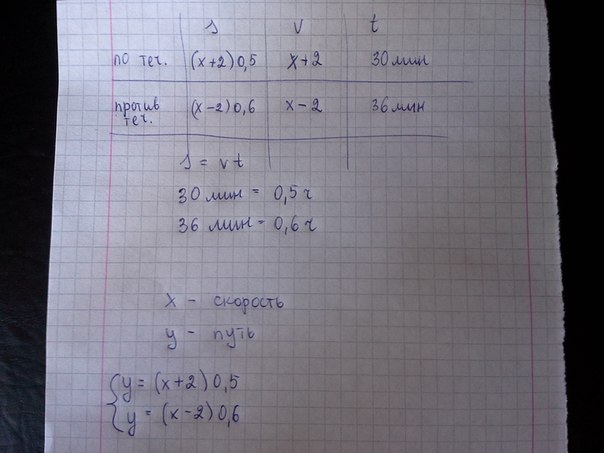 s v t
по теч. (x+2)0,5 x+2 30 мин
против (x-2)0,6 x-2 36 мин
теч.
s = vt
30 мин = 0,5 ч
36 мин = 0,6 ч
x - скорость
y - путь
{ y = (x+2)0,5
y = (x-2)0,6